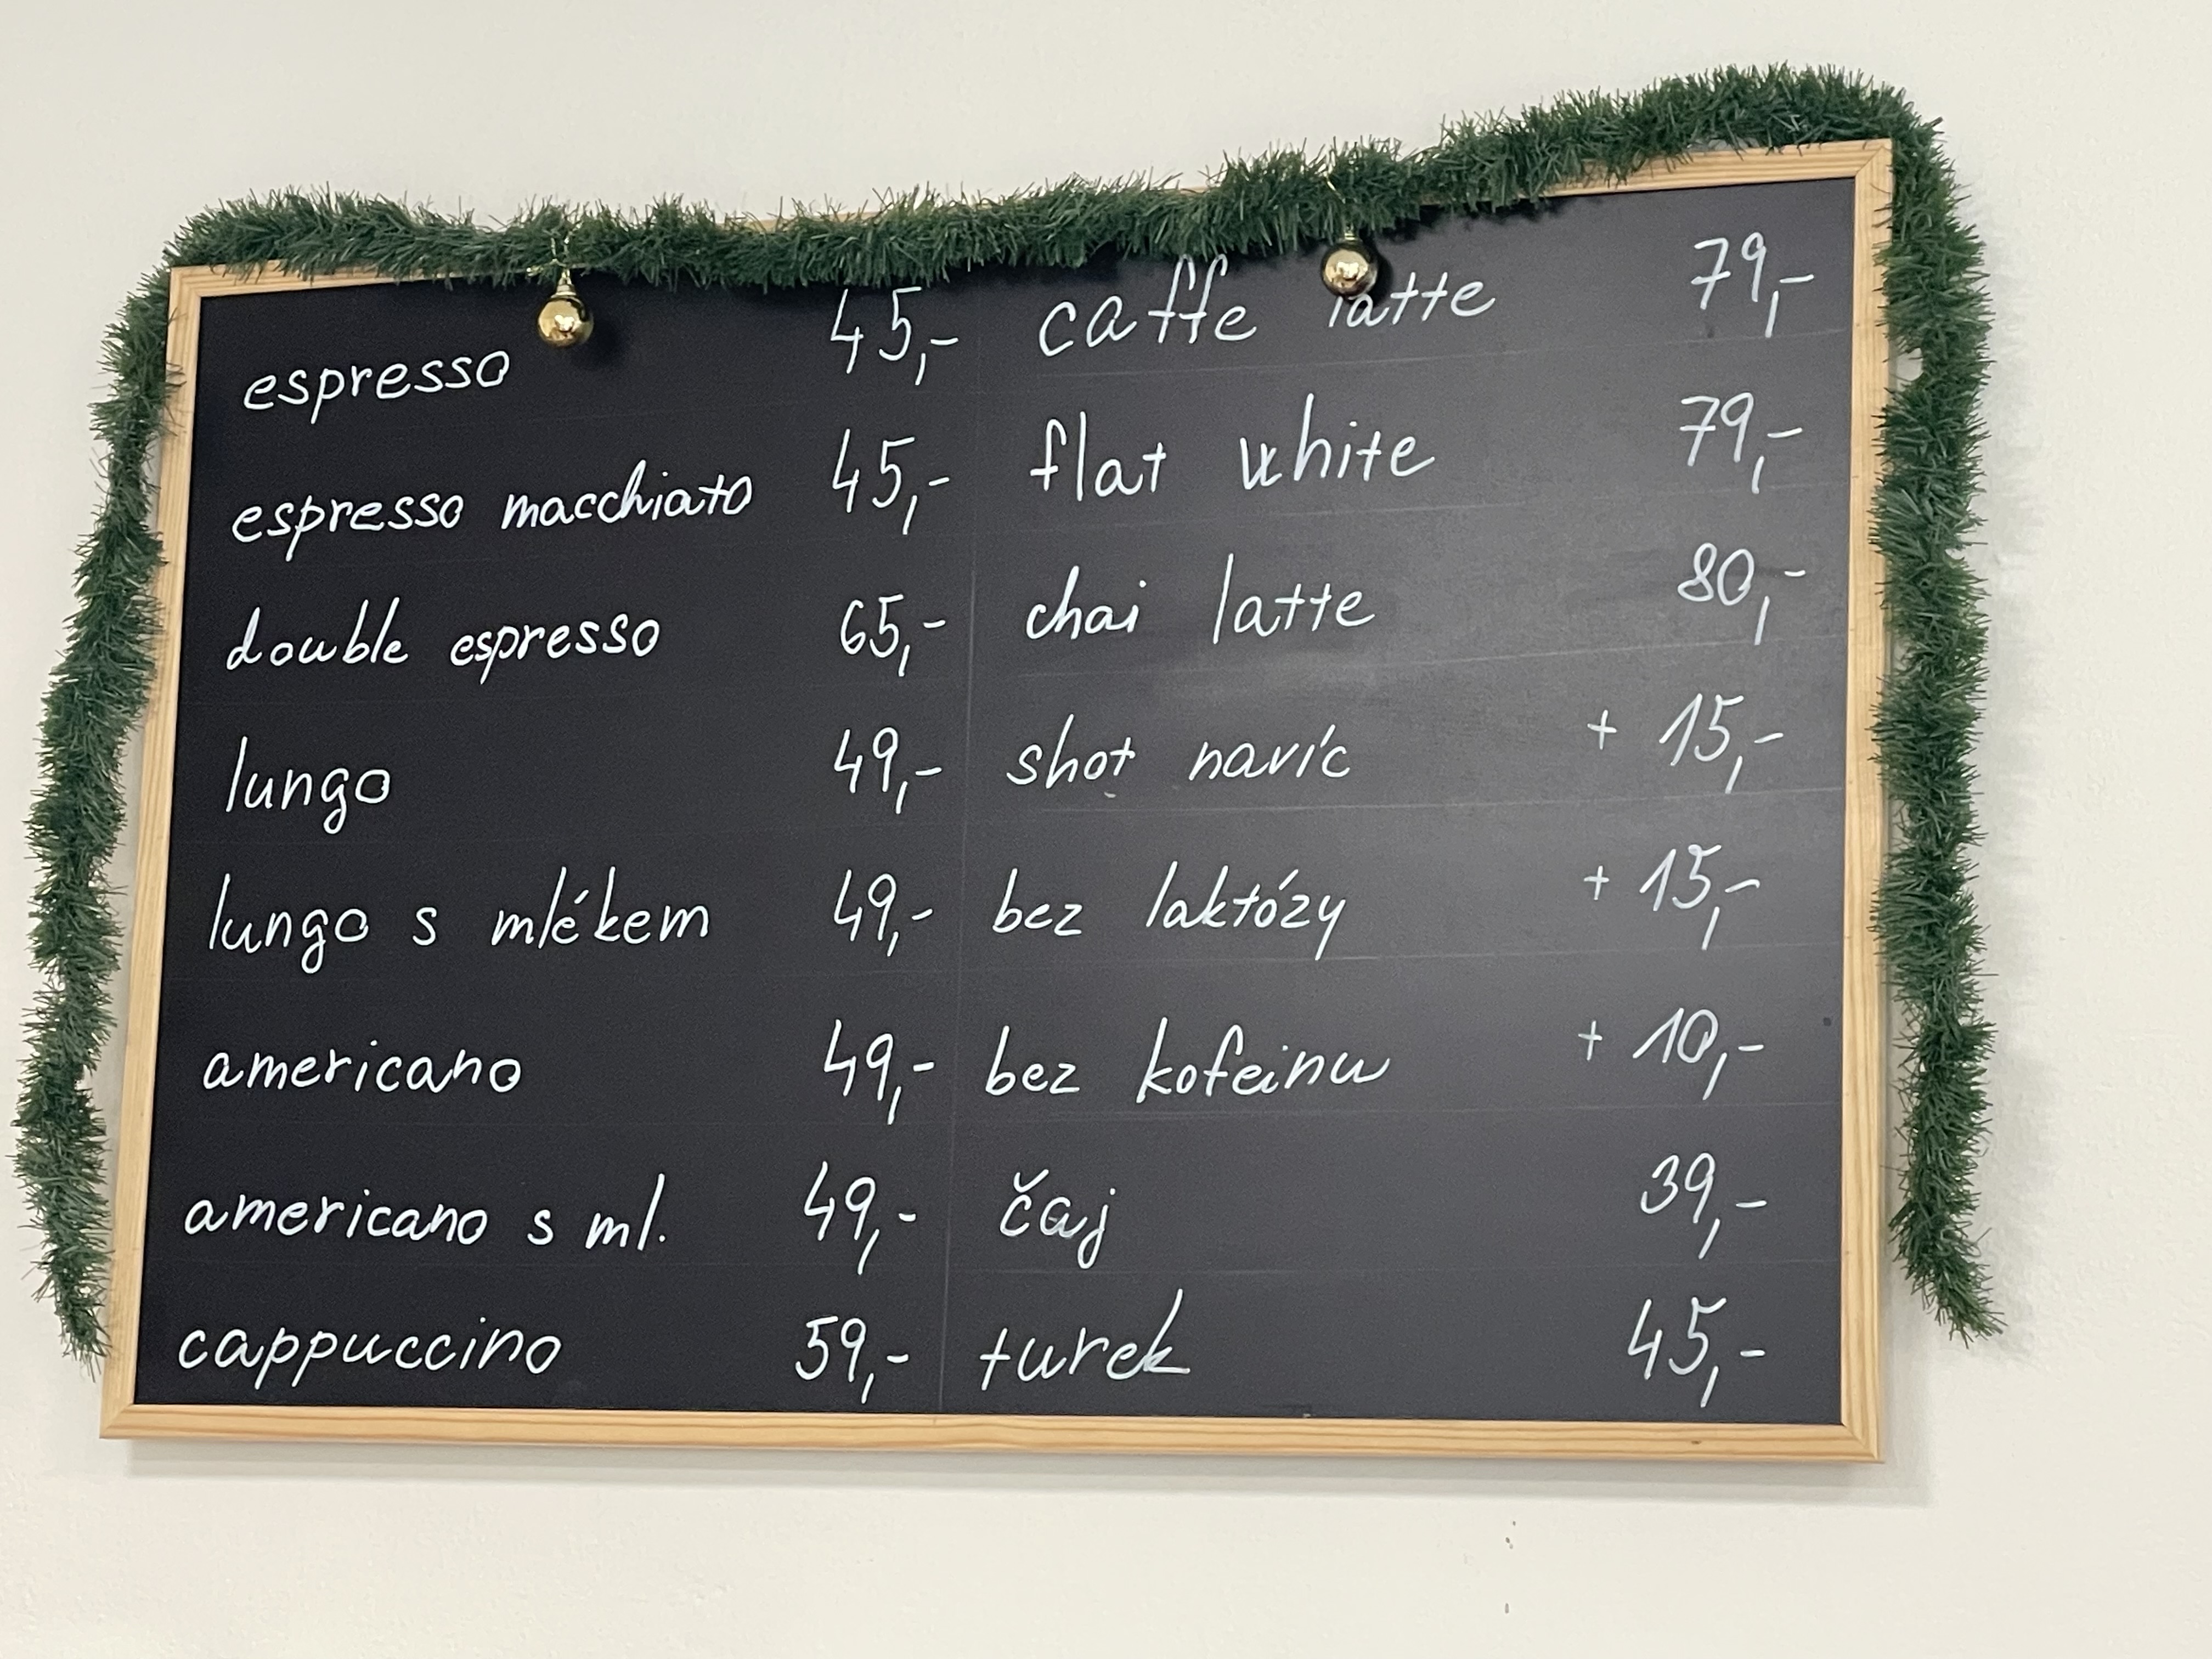 espresso 45,-
espresso macchiato 45,-
double espresso 65,-
lungo 49,-
lungo s mlékem 49,-
americano 49,-
americano s ml. 49,-
cappuccino 59,-
caffe latte 79,-
flat white 79,-
chai latte 80,-
shot navíc + 15,-
bez laktózy + 15,-
bez kofeinu + 10,-
čaj 39,-
turek 45,-